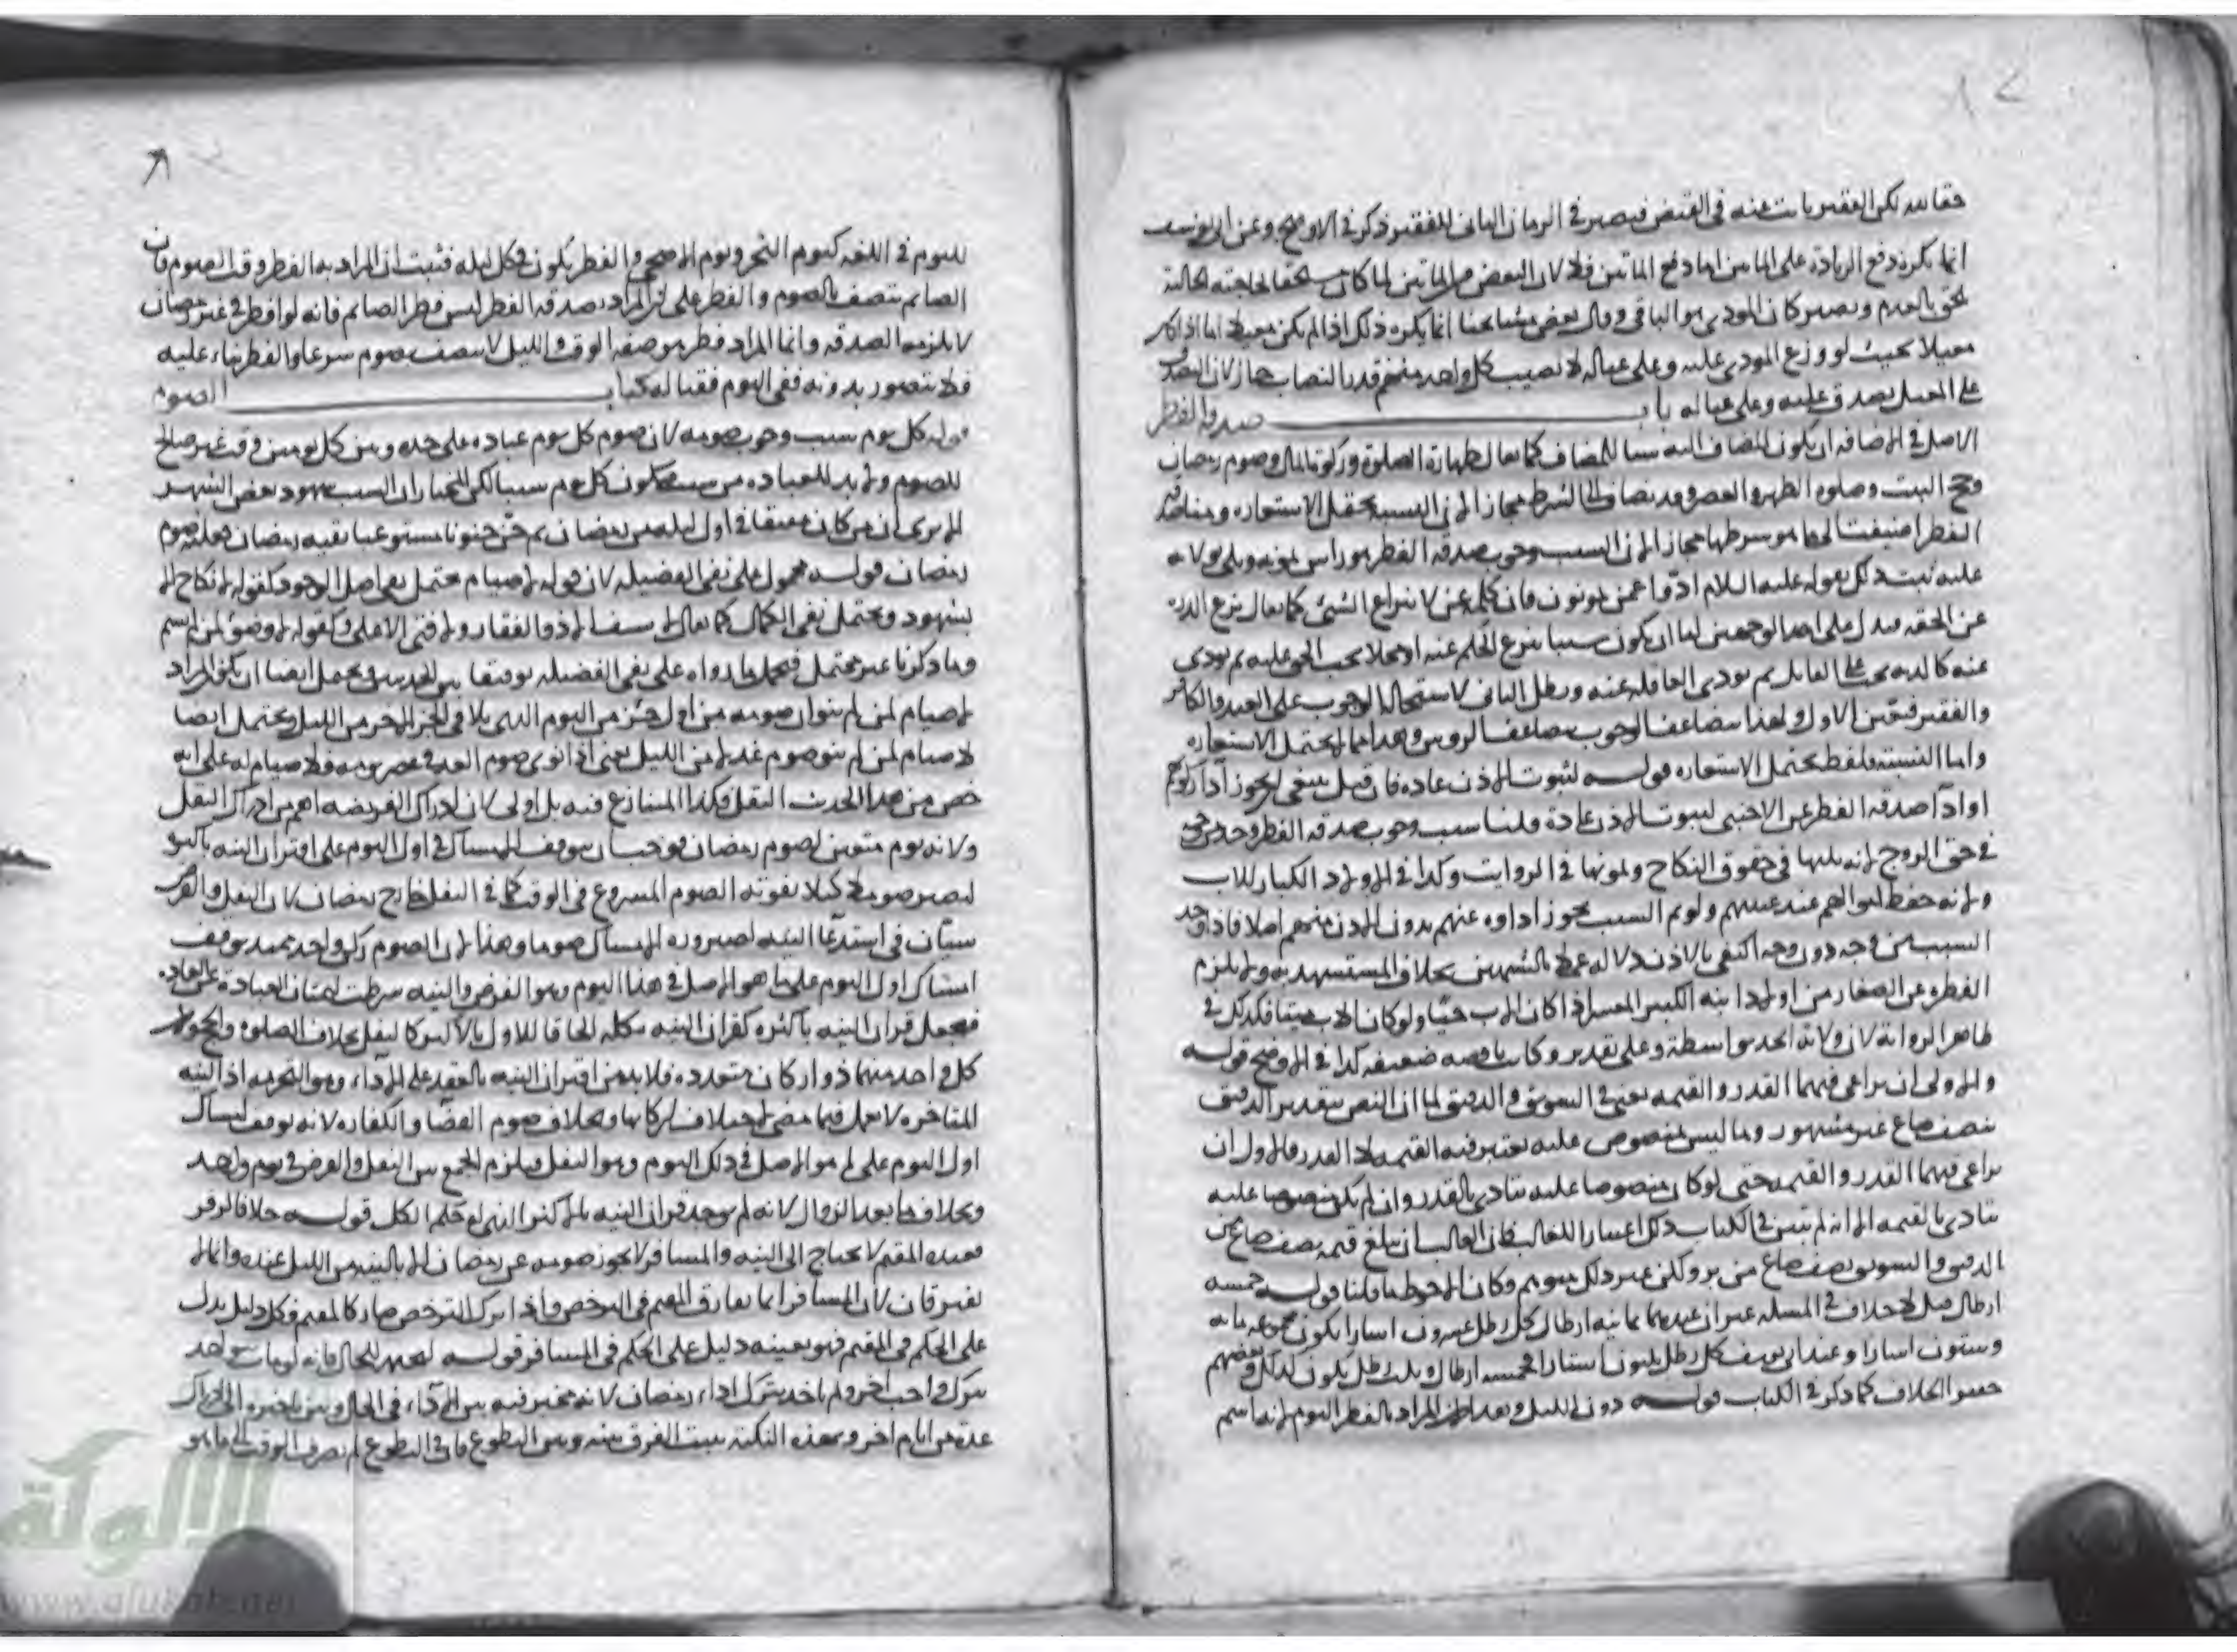 حقا لله لكن الفقير نائب عنه في القبض فيصير في الزمان الثاني للفقير ذكر في الاوضح وعن ابي يوسف
انما يكره دفع الزيادة على المائتين اما دفع المائتين فلا لان البعض من المائتين لما كان مستحقا لحاجته الحالية
يلحق بالعدم ويصير كان المودى هو الباقي وقال بعض مشايخنا انما يكره ذلك اذا لم يكن معيلا اما اذا كان
معيلا بحيث لو وزع المودى عليه وعلى عياله لا يصيب كل واحد منهم قدر النصاب جاز لان التصدق
على المعيل تصدق عليه وعلى عياله باب صدقة الفطر
الاصل في الاضافة ان يكون المضاف اليه سببا للمضاف كما يقال طهارة الصلوة وزكوة المال وصوم رمضان
وحج البيت وصلوة الظهر والعصر وقد يضاف الى الشرط مجازا لان النسبة تحتمل الاستعارة وههنا صدقة
الفطر اضيفت الى ما هو شرطها مجازا لان السبب وجوب صدقة الفطر هو راس يمونه ويلي لولاية
عليه ثبت ذلك بقوله عليه السلام ادوا عمن تمونون فان كلمة عن لانتزاع الشيء كما يقال نزع الدرة
عن الحقة فيدل على احد الوجهين اما ان يكون سببا ينزع الحكم عنه او محلا يجب الحق عليه ثم يودى
عنه كالدية تجب على القاتل ثم تودى العاقلة عنه وبطل الثاني لاستحالة الوجوب على العبد والكافر
والفقير فتعين الاول ولهذا يتضاعف الوجوب بتضاعف الروس وهذا مما لا يحتمل الاستعارة
واما النسبة فلفظ يحتمل الاستعارة قوله لثبوت الاذن عادة فان قيل ينبغي ان يجوز اداء زكوتهم
او اداء صدقة الفطر عن الاجنبي لثبوت الاذن عادة قلنا سبب وجوب صدقة الفطر وجد من وجه
في حق الزوج لانه يليها في حقوق النكاح ويمونها في الرواتب وكذا في الاولاد الكبار للاب
ولانه حفظ اموالهم عند غيبتهم ولو تم السبب يجوز اداوه عنهم بدون الاذن منهم اصلا فاذا وجد
السبب من وجه دون وجه اكتفى بالاذن دلالة عملا بالشبهين بخلاف المستشهد به ولا يلزم
الفطرة عن الصغار من اولاد ابنه الكبير المعسر اذا كان الاب حيا ولو كان الاب ميتا فكذلك في
ظاهر الرواية لان ولاية الجد بواسطة وعلى تقدير وكانت ناقصة ضعيفة كذا في الاوضح قوله
والاولى ان يراعى فيهما القدر والقيمة يعني في السويق والدقيق لما ان النص بتقدير الدقيق
بنصف صاع غير مشهور وما ليس بمنصوص عليه يعتبر فيه القيمة لا القدر فالاولى ان
يراعى فيهما القدر والقيمة حتى لو كان منصوصا عليه يتادى بالقدر وان لم يكن منصوصا عليه
يتادى بالقيمة الا انه لم يبين في الكتاب ذلك اعتبارا للغالب فان الغالب ان تبلغ قيمة نصف صاع من
الدقيق والسويق نصف صاع من بر ولكن غير ذلك متوهم وكان الاحوط ما قلنا قوله خمسة
ارطال قيل لا خلاف في المسئلة غير ان عندهما ثمانية ارطال كل رطل عشرون استارا يكون مجموعه مائة
وستون استارا وعند ابي يوسف كل رطل ثلثون استارا فخمسة ارطال وثلث رطل يكون كذلك وبعضهم
حققوا الخلاف كما ذكر في الكتاب قوله دون الليل وبعد اطلاق المراد بالفطر اليوم لانه اسم
لليوم في اللغة كيوم النحر ويوم الاضحى والفطر يكون في كل ليلة فثبت ان المراد به الفطر وقت الصوم فان
الصائم يتصف بالصوم والفطر على ان المراد بصدقة الفطر ليس فطر الصائم فانه لو افطر في غير رمضان
لا يلزمه الصدقة وانما المراد فطر هو صفة الوقت والليل لا يتصف بصوم شرعا والفطر بناء عليه
فلا يتصور بدونه ففي اليوم فقبا له كتاب الصوم
قوله كل يوم سبب وجوب صومه لان صوم كل يوم عبادة على حده وبين كل يومين وقت غير صالح
للصوم ولا بد للعبادة من سبب فيكون كل يوم سببا لكن المختار ان السبب شهود بعض الشهر
الا يرى ان من كان مفيقا في اول ليلة من رمضان ثم جن جنونا مستوعبا بقية رمضان فعليه صوم
رمضان قوله محمول على نفي الفضيلة لان قوله لا صيام محتمل نفي اصل الوجود كقوله لا نكاح الا
بشهود ويحتمل نفي الكمال كما يقال لا سيف الا ذو الفقار ولا فتى الا علي وكقوله لا وضوء لمن لم يسم
وما ذكرنا غير محتمل فيحمل ما رواه على نفي الفضيلة توفيقا بين الحديثين ويحتمل ايضا ان يكون المراد
لا صيام لمن لم ينو ان صومه من اول جزء من اليوم الذي يلاقي الجزء الاخير من الليل ويحتمل ايضا
لا صيام لمن لم ينو صوم غد من الليل يعني اذا نوى صوم الغد في عصر يومه فلا صيام له على انه
خص من هذا الحديث النفل فكذا المتنازع فيه بل اولى لان ادراك الفريضة اهم من ادراك النفل
ولانه يوم متعين لصوم رمضان فوجب ان يتوقف الامساك في اول اليوم على اقتران النية باكثره
ليصير صوما كيلا يفوته الصوم المشروع في الوقت كما في النفل خارج رمضان لان النفل والفرض
سيان في استدعاء النية لصيرورة الامساك صوما وهذا لان الصوم ركن واحد ممتد يتوقف
امساك اول اليوم على ما هو الاصل في هذا اليوم وهو الفرض والنية شرطت لامتياز العبادة عن العادة
فيجعل قران النية باكثره كقران النية بكله الحاقا للاول بالاكثر كالنفل بخلاف الصلوة والحج لان
كل واحد منهما ذو اركان متعددة فلا بد من اقتران النية بالعقد على الاداء وهو التحريمة اذ النية
المتاخرة لا تعمل فيما مضى لاختلاف اركانها وبخلاف صوم القضاء والكفارة لانه توقف امساك
اول اليوم على ما هو الاصل في ذلك اليوم وهو النفل ويلزم الجمع بين النفل والفرض في يوم واحد
وبخلاف ما بعد الزوال لانه لم يوجد قران النية بالاكثر الذي له حكم الكل قوله خلافا لزفر
فعنده المقيم لا يحتاج الى النية والمسافر لا يجوز صومه عن رمضان الا بالنية من الليل عنده وانما لا
يفترقان لان المسافر انما يفارق المقيم في الترخص واذا ترك الترخص صار كالمقيم فكل دليل يدل
على الحكم في المقيم فهو بعينه دليل على الحكم في المسافر قوله لتحتمه للحال فانه لو مات يواخذ
بترك واجب اخر ولم ياخذ بترك اداء رمضان لانه مخير فيه بين الاداء في الحال وبين تاخيره الى ادراك
عدة من ايام اخر وبهذه النكتة يثبت الفرق بينه وبين التطوع فان في التطوع لم يصرف الوقت الى ما هو